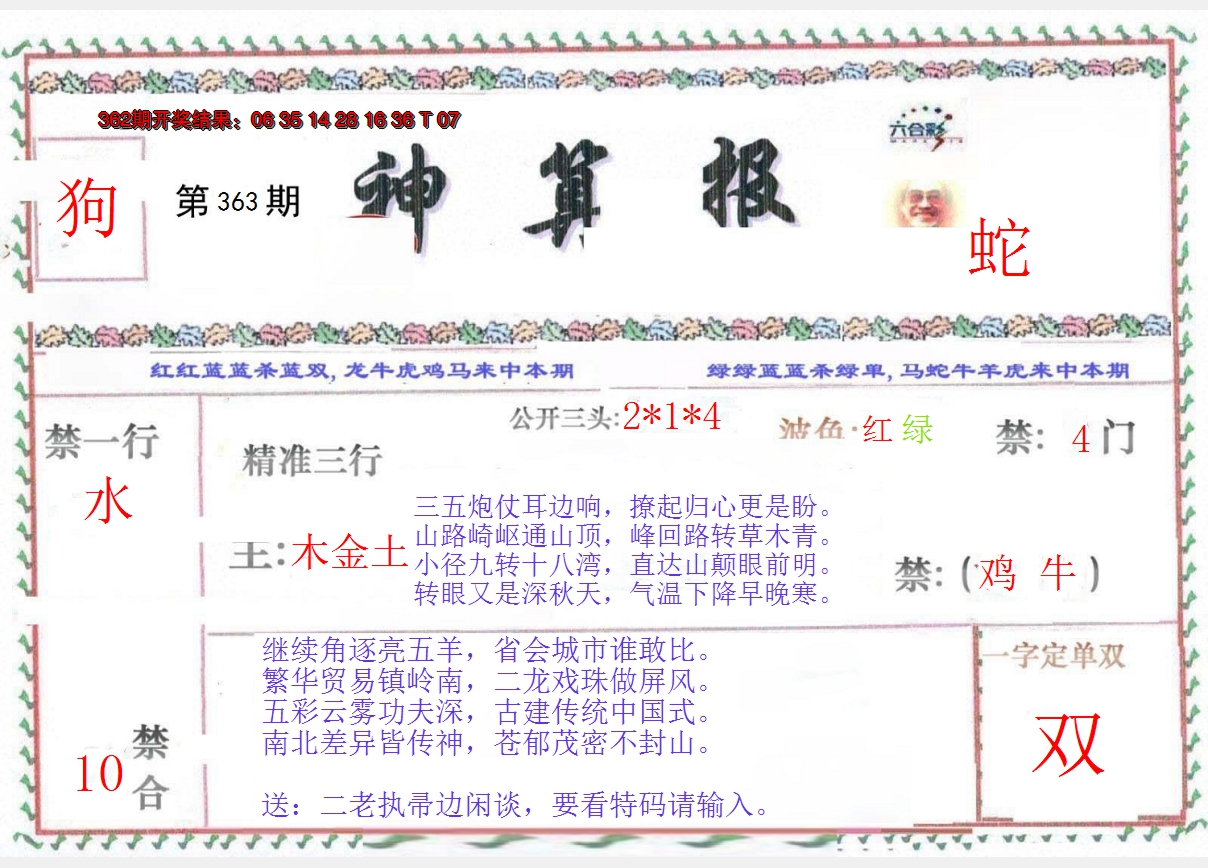 362期开奖结果：06 35 14 28 16 36 T 07
六合彩
狗
第 363 期
神算报
蛇
红红蓝蓝杀蓝双, 龙牛虎鸡马来中本期
绿绿蓝蓝杀绿单, 马蛇牛羊虎来中本期
公开三头:2*1*4
波色:红 绿
禁一行
水
精准三行
禁: 4 门
三五炮仗耳边响，撩起归心更是盼。
山路崎岖通山顶，峰回路转草木青。
主:木金土
小径九转十八湾，直达山颠眼前明。
转眼又是深秋天，气温下降早晚寒。
禁: (鸡 牛)
继续角逐亮五羊，省会城市谁敢比。
繁华贸易镇岭南，二龙戏珠做屏风。
五彩云雾功夫深，古建传统中国式。
南北差异皆传神，苍郁茂密不封山。
送：二老执帚边闲谈，要看特码请输入。
一字定单双
双
10
禁合